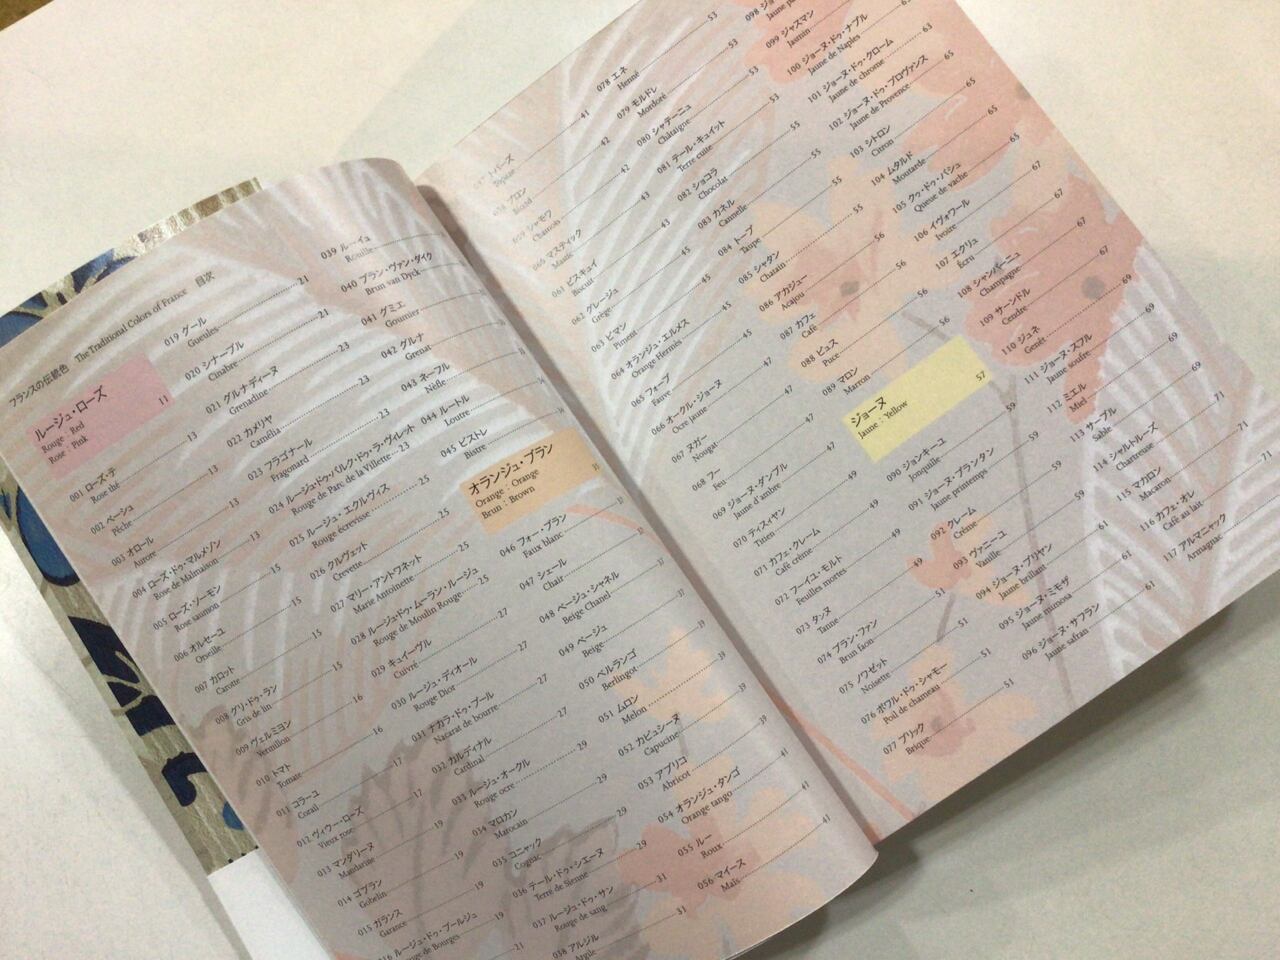 フランスの伝統色 The Traditional Colors of France 目次
ルージュ・ローズ
Rouge : Red
Rose : Pink 11
001 ローズ・テ
Rose thé 13
002 ペーシュ
Pêche 13
003 オロール
Aurore 13
004 ローズ・ドゥ・マルメゾン
Rose de Malmaison 13
005 ローズ・ソーモン
Rose saumon 15
006 オルセーユ
Orseille 15
007 カロット
Carotte 15
008 グリ・ドゥ・ラン
Gris de lin 15
009 ヴェルミヨン
Vermillon 16
010 トマト
Tomate 16
011 コラーユ
Corail 17
012 ヴィウー・ローズ
Vieux rose 17
013 マンダリーヌ
Mandarine 19
014 ゴブラン
Gobelin 19
015 ガランス
Garance 19
016 ルージュ・ドゥ・ブールジュ
Rouge de Bourges 19
21
019 グール
Gueules 21
020 シナーブル
Cinabre 21
021 グルナディーヌ
Grenadine 23
022 カメリヤ
Camélia 23
023 フラゴナール
Fragonard 23
024 ルージュ・ドゥ・パルク・ドゥ・ラ・ヴィレット
Rouge de Parc de la Villette 23
025 ルージュ・エクルヴィス
Rouge écrevisse 25
026 クルヴェット
Crevette 25
027 マリー・アントワネット
Marie Antoinette 25
028 ルージュ・ドゥ・ムーラン・ルージュ
Rouge de Moulin Rouge 25
029 キュイーヴル
Cuivré 27
030 ルージュ・ディオール
Rouge Dior 27
031 ナカラ・ドゥ・ブール
Nacarat de bourre 27
032 カルディナル
Cardinal 27
033 ルージュ・オークル
Rouge ocre 29
034 マロカン
Marocain 29
035 コニャック
Cognac 29
036 テール・ドゥ・シエーヌ
Terre de Sienne 29
037 ルージュ・ドゥ・サン
Rouge de sang 31
038 アルジル
Argile 31
039 ルーイュ
Rouille
040 ブラン・ヴァン・ダイク
Brun van Dyck
041 グミエ
Gournier
042 グルナ
Grenat
043 ネーフル
Nèfle
044 ルートル
Loutre
045 ビストレ
Bistre
オランジュ・ブラン
Orange : Orange
Brun : Brown
046 フォー・ブラン
Faux blanc
047 シェール
Chair
048 ベージュ・シャネル
Beige Chanel 37
049 ベージュ
Beige 39
050 ベルランゴ
Berlingot 39
051 ムロン
Melon 39
052 カピュシーヌ
Capucine 39
053 アプリコ
Abricot 41
054 オランジュ・タンゴ
Orange tango 41
055 ルー
Roux 41
056 マイース
Maïs
トパーズ
Topaze 41
ブロン
42
059 シャモワ
Chamois 42
060 マスティック
Mastic 43
061 ビスキュイ
Biscuit 43
062 グレージュ
Grège 45
063 ピマン
Piment 45
064 オランジュ・エルメス
Orange Hermès 45
065 フォーブ
Fauve 45
066 オークル・ジョーヌ
Ocre jaune 47
067 ヌガー
Nougat 47
068 フー
Feu 47
069 ジョーヌ・ダンブル
Jaune d'ambre 47
070 ティスィヤン
Titien 49
071 カフェ・クレーム
Café crème 49
072 フーイユ・モルト
Feuilles mortes 49
073 タンヌ
Tanne 49
074 ブラン・ファン
Brun faon 51
075 ノワゼット
Noisette 51
076 ポワル・ドゥ・シャモー
Poil de chameau 51
077 ブリック
Brique 51
078 エネ
Henné 53
079 モルドレ
Mordoré 53
080 シャテーニュ
Châtaigne 53
081 テール・キュイット
Terre cuite 53
082 ショコラ
Chocolat 55
083 カネル
Cannelle 55
084 トープ
Taupe 55
085 シャタン
Chatain 55
086 アカジュー
Acajou 56
087 カフェ
Café 56
088 ピュス
Puce 56
089 マロン
Marron
ジョーヌ
Jaune : Yellow 57
090 ジョンキーユ
Jonquille 59
091 ジョーヌ・プランタン
Jaune printemps 59
092 クレーム
Crème 59
093 ヴァニーユ
Vanille 61
094 ジョーヌ・ブリヤン
Jaune brillant 61
095 ジョーヌ・ミモザ
Jaune mimosa 61
096 ジョーヌ・サフラン
Jaune safran 61
098
099 ジャスマン
Jasmin
100 ジョーヌ・ドゥ・ナプル
Jaune de Naples 63
101 ジョーヌ・ドゥ・クローム
Jaune de chrome 63
102 ジョーヌ・ドゥ・プロヴァンス
Jaune de Provence 65
103 シトロン
Citron 65
104 ムタルド
Moutarde 65
105 クゥ・ドゥ・バシュ
Queue de vache 65
106 イヴォワール
Ivoire 67
107 エクリュ
Écru 67
108 シャンパーニュ
Champagne 67
109 サーンドル
Cendre 67
110 ジュネ
Genêt 69
111 ジョーヌ・スフル
Jaune soufre 69
112 ミエル
Miel 69
113 サーブル
Sable 69
114 シャルトルーズ
Chartreuse 71
115 マカロン
Macaron 71
116 カフェ・オ・レ
Café au lait 71
117 アルマニャック
Armagnac